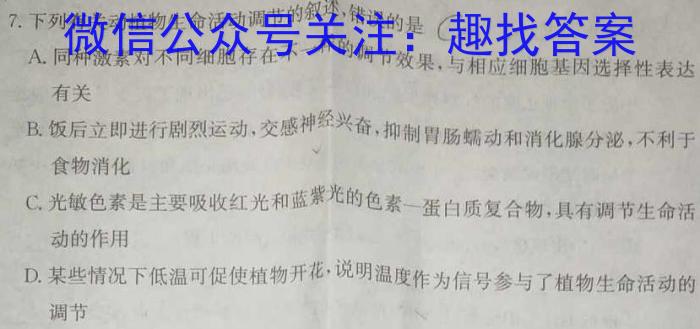 7. 下列 动植物生命活动调节的叙述,错误的是(
微信公众号关注:趣找答案
A. 同种激素对不同细胞存在不一样的调节效果,与相应细胞基因选择性表达
有关
B. 饭后立即进行剧烈运动,交感神经兴奋,抑制胃肠蠕动和消化腺分泌,不利于
食物消化
C. 光敏色素是主要吸收红光和蓝紫光的色素—蛋白质复合物,具有调节生命活
动的作用
D. 某些情况下低温可促使植物开花,说明温度作为信号参与了植物生命活动的
调节